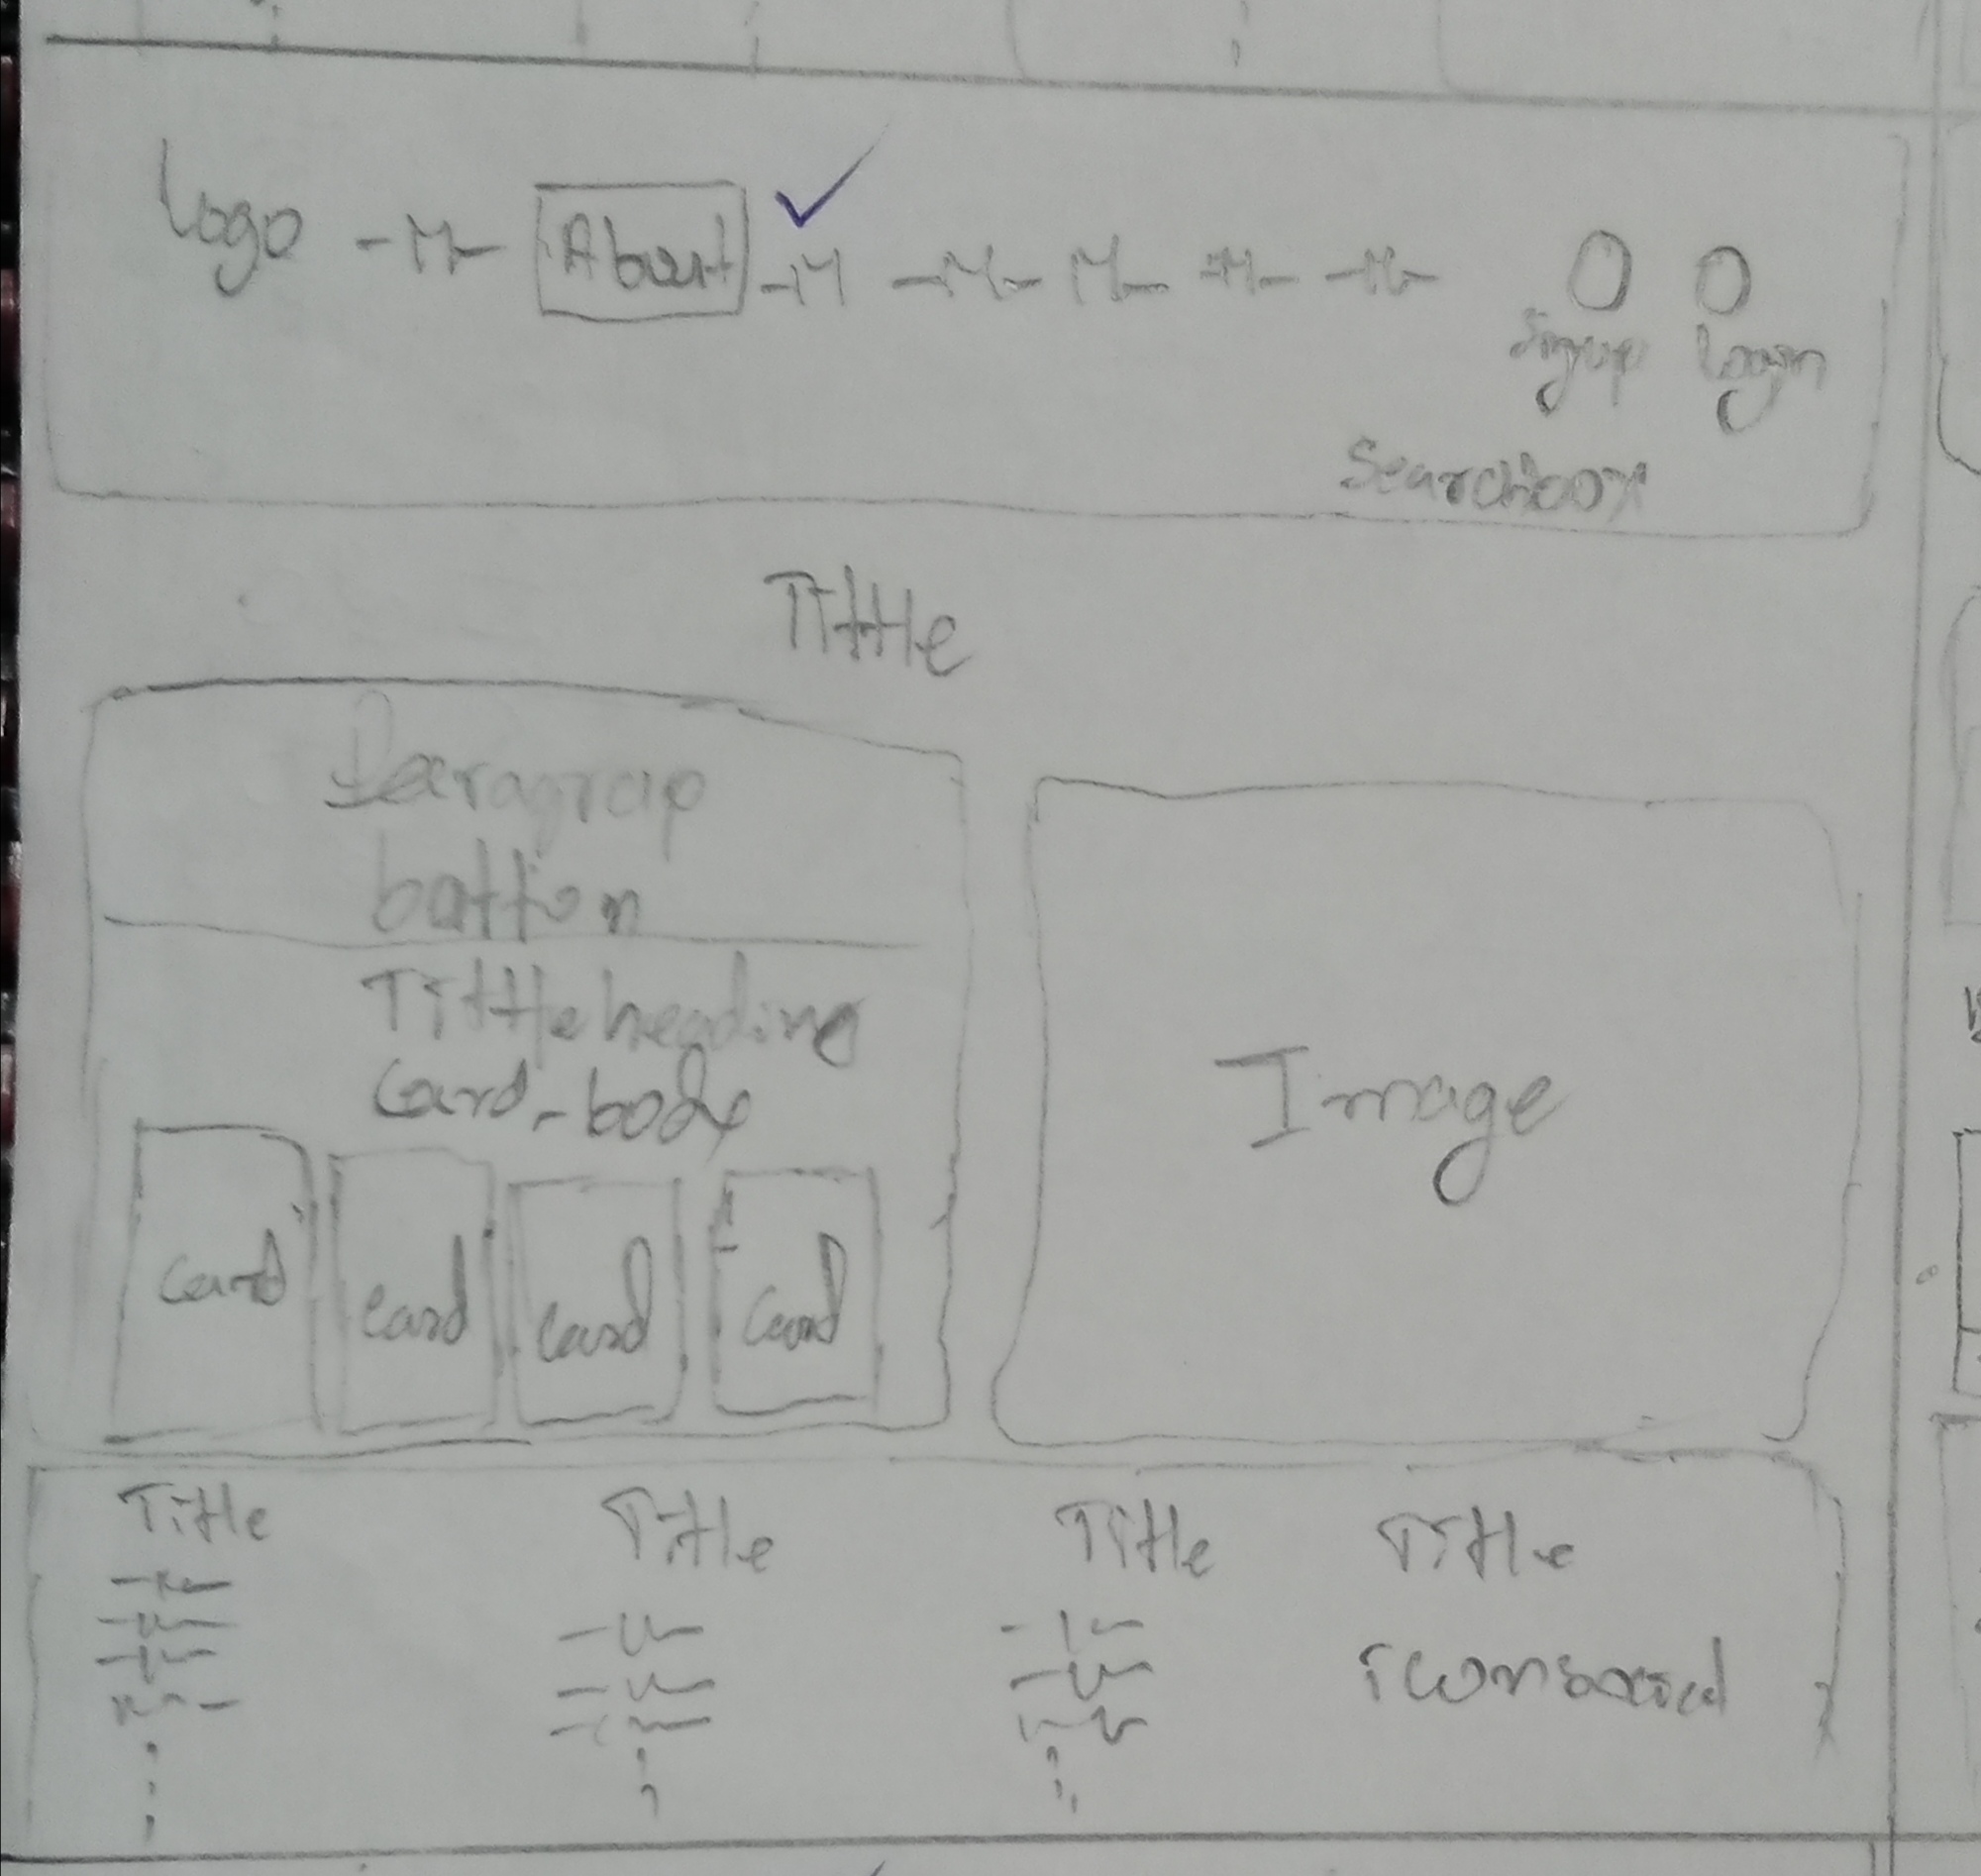 Logo About
Signup Login
Searchbox
Tittle
Paragrap
button
Tittle heading
Card-body
Card Card Card Card
Title Title Title Title
icon social